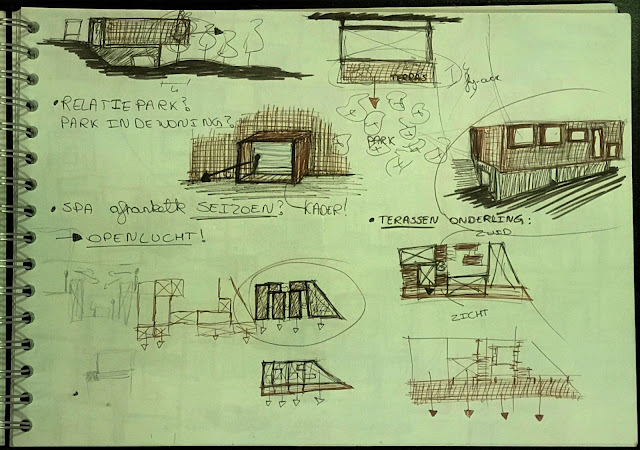 TERRAS
• RELATIE PARK?
PARK IN DE WONING?
PARK
• SPA afhankelijk SEIZOEN? KADER!
→ OPENLUCHT!
• TERASSEN ONDERLING:
ZUID
ZICHT